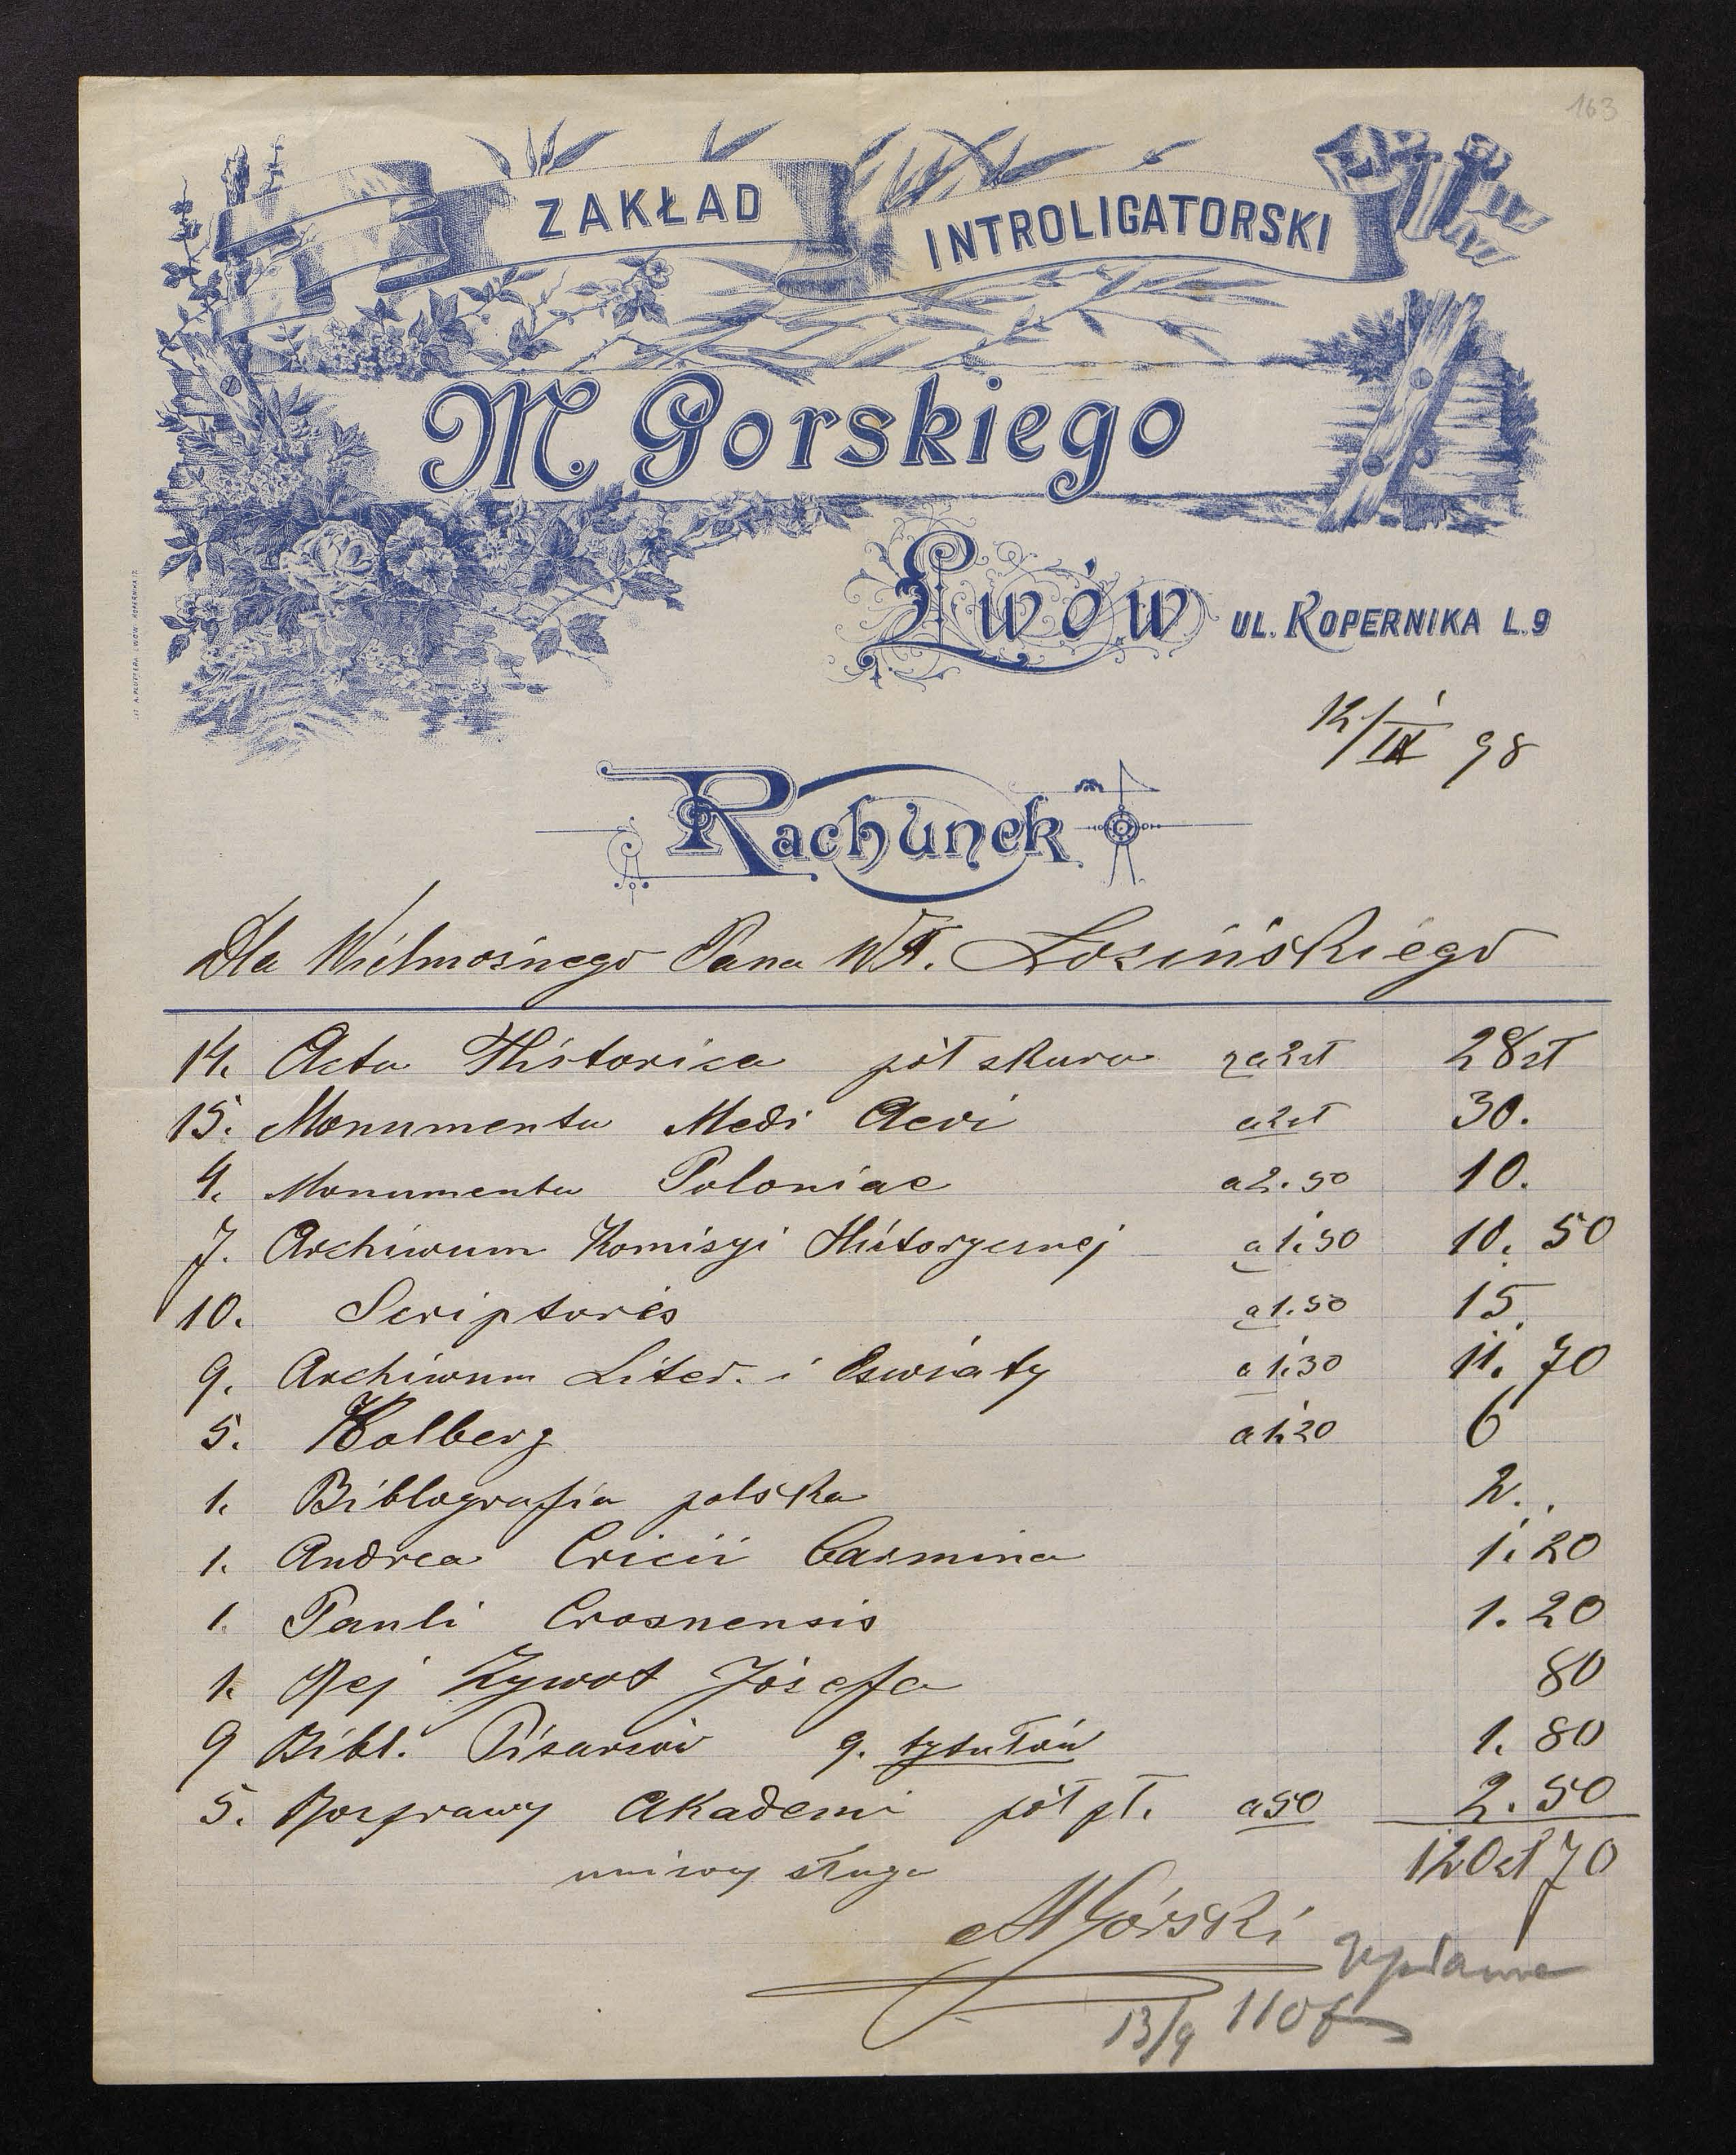 163
ZAKŁAD INTROLIGATORSKI
M. Gorskiego
Lwów UL. KOPERNIKA L.9
LIT. A. PRZYSZLAK LWÓW KOPERNIKA
12/IX 98
Rachunek
Dla Wielmośnego Pana Wł. Łozińskiego
14. Acta Historica pół skura za 2 zł 28 zł
15. Monumenta Medi Aevi a 2 zł 30.
4. Monumenta Poloniae a 2.50 10.
7. Archiwum Komisyi Historycznej a 1.50 10. 50
10. Scriptores a 1.50 15
9. Archiwum Liter. i Oswiaty a 1.30 11. 70
5. Kolberg a 1.20 6
1. Biblografia polska 2.
1. Andrea Cricii Carmina 1. 20
1. Pauli Crosnensis 1. 20
1. Rej Zywot Józefa 80
9 Bibl. Pisarzów 9. tytułów 1. 80
5. Rozprawy Akademi pół pł. a 50 2. 50
120 zł 70
uniżony sługa
MGórski
13/9 110 f